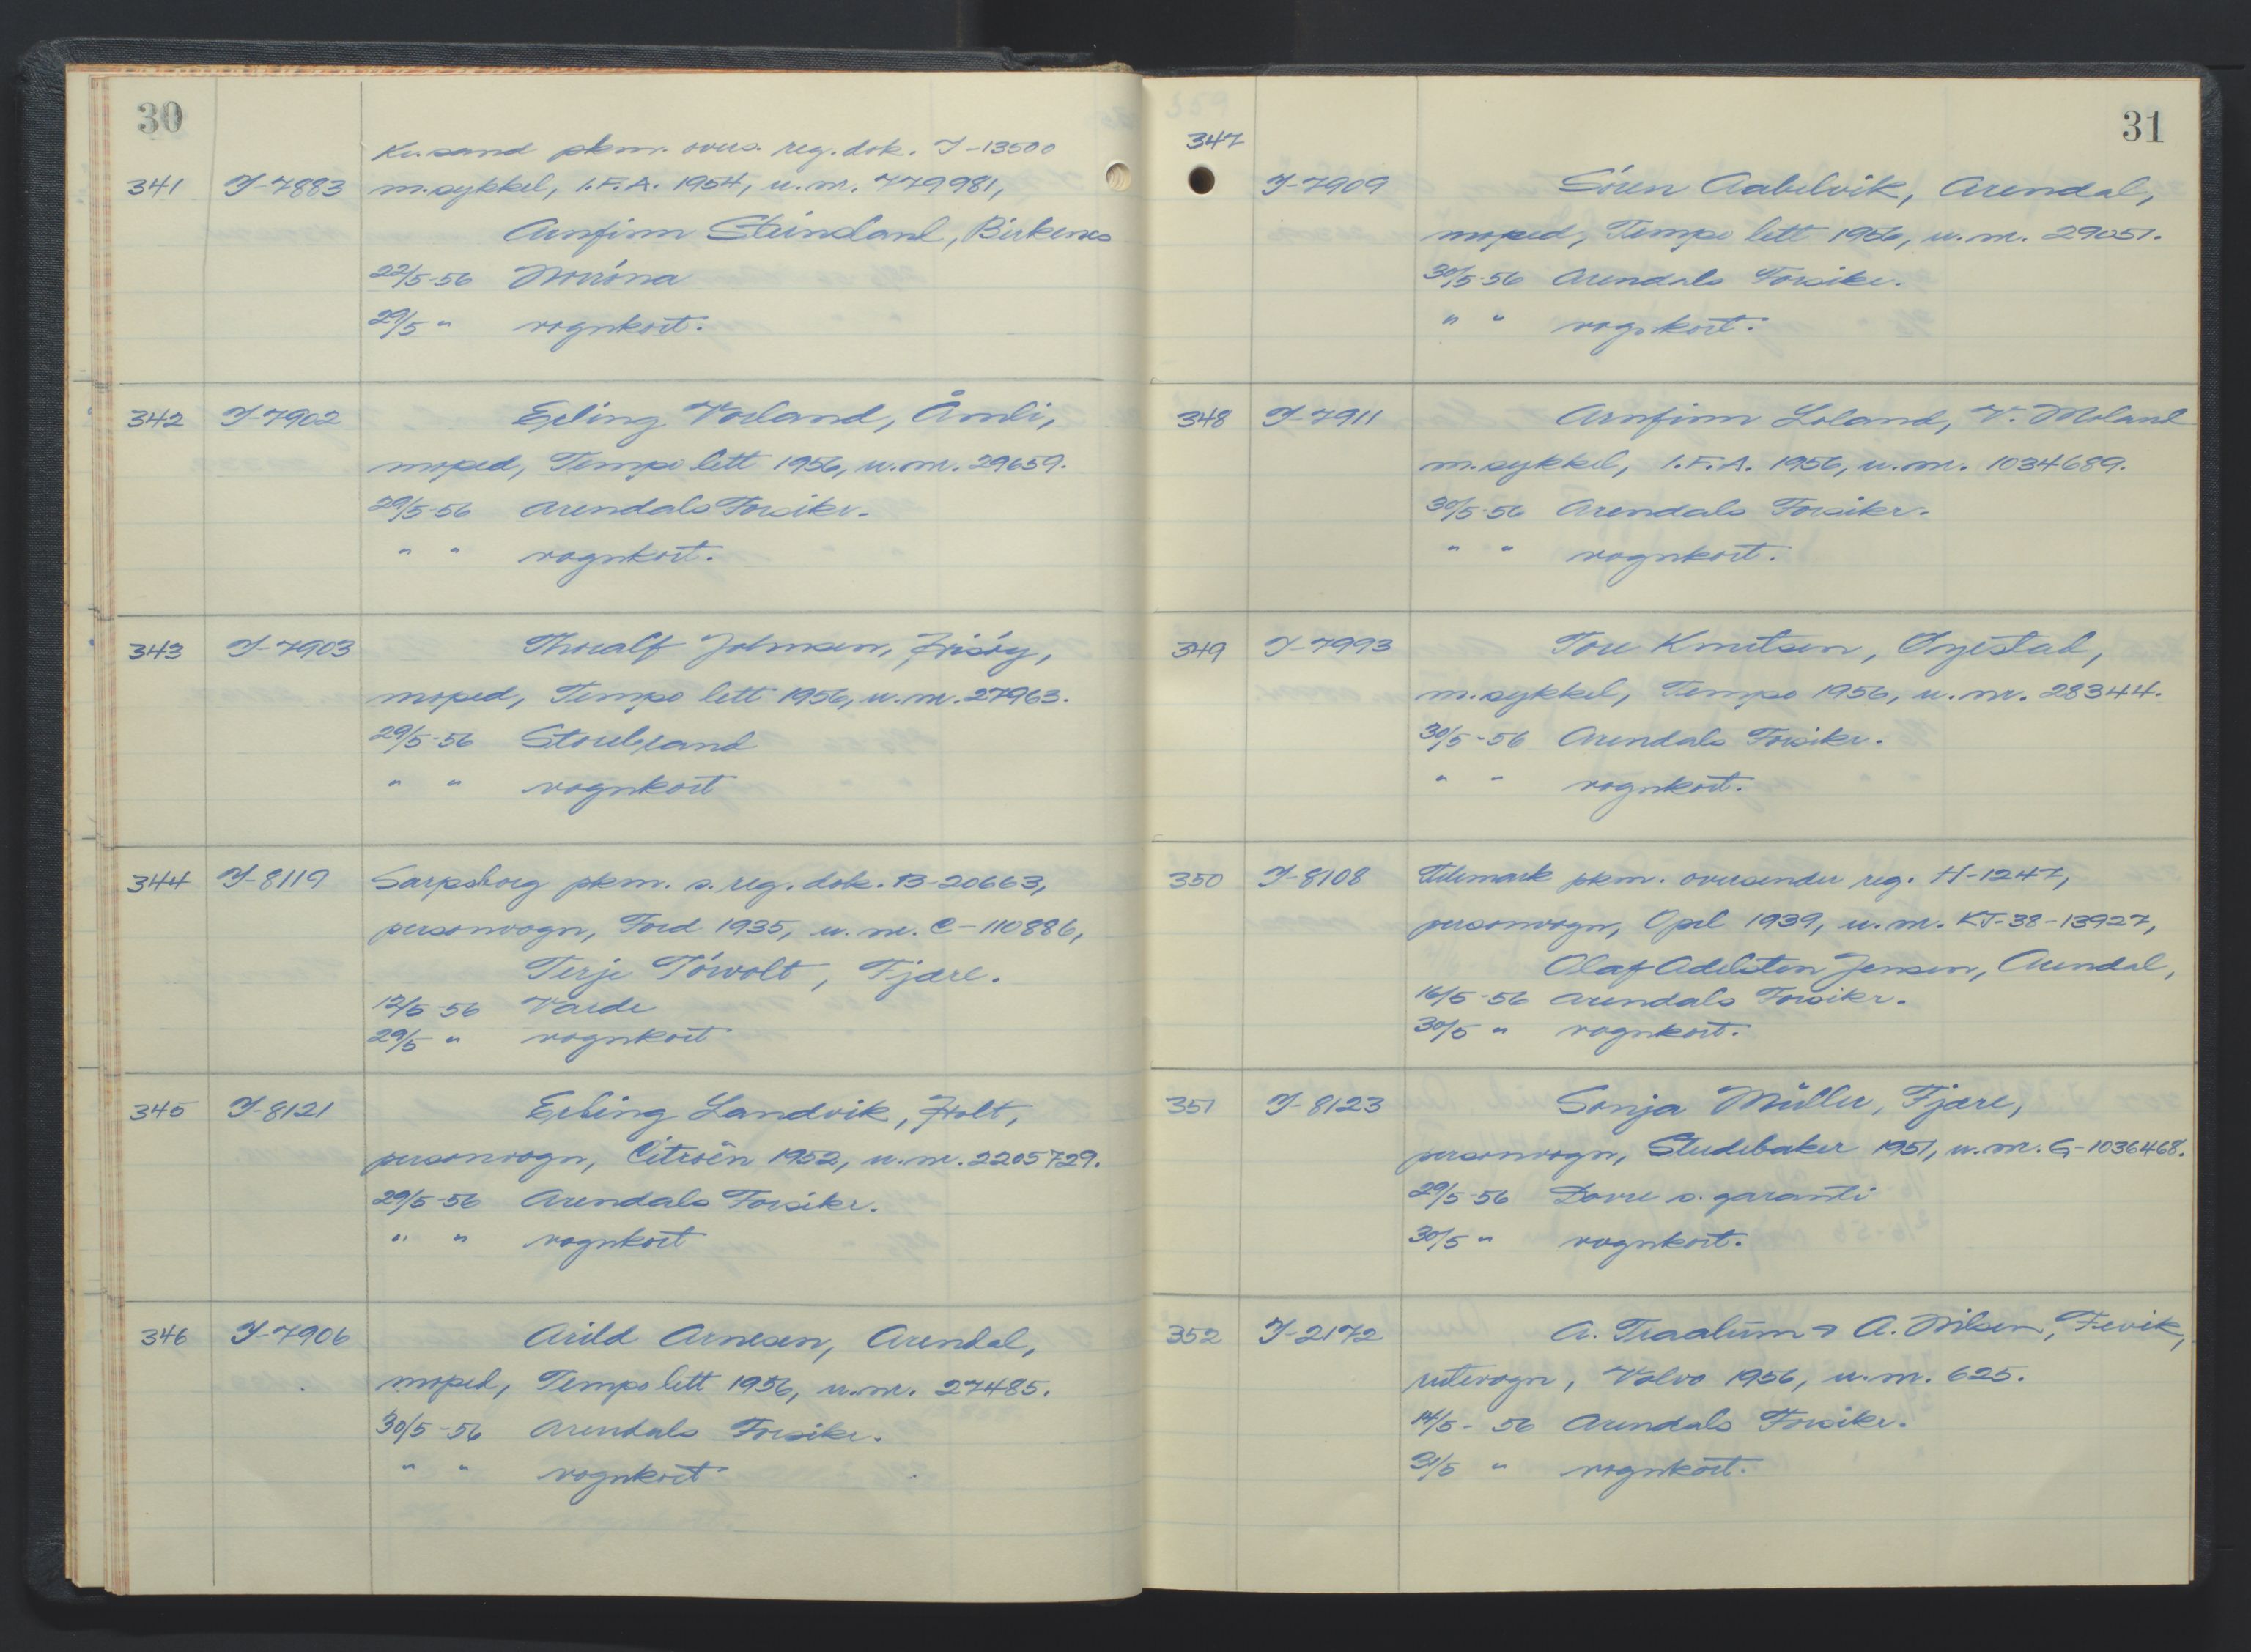 30
Kr.sand pkm. overs. reg. dok. I-13500
341 I-7883 m.sykkel, I.F.A. 1954, u.m. 779981,
Arnfinn Steindand, Birkenes
22/5-56 Norröna
29/5 " vognkort.
342 I-7902 Erling Vorland, Åmli,
moped, Tempo lett 1956, u.m. 29659.
29/5-56 Arendals Forsikr.
" " vognkort.
343 I-7903 Thoralf Johnsen, Hisöy,
moped, Tempo lett 1956, u.m. 27963.
29/5-56 Storebrand
" " vognkort
344 I-8119 Sarpsborg pkm. s. reg. dok. B-20663,
personvogn, Ford 1935, u. m. C-110886,
Terje Törvolt, Fjære.
12/5-56 Varde
29/5 " vognkort
345 I-8121 Erling Landvik, Holt,
personvogn, Citroën 1952, u.m. 2205729.
29/5-56 Arendals Forsikr.
" " vognkort
346 I-7906 Arild Arnesen, Arendal,
moped, Tempo lett 1956, u.m. 27485.
30/5-56 Arendals Forsikr.
" " vognkort
31
347
I-7909 Sören Aabelvik, Arendal,
moped, Tempo lett 1956, u.m. 29051.
30/5-56 Arendals Forsikr.
" " vognkort.
348 I-7911 Arnfinn Loland, V. Moland
m.sykkel, I.F.A. 1956, u.m. 1034689.
30/5-56 Arendals Forsikr.
" " vognkort.
349 I-7993 Tore Knutsen, Öyestad,
m.sykkel, Tempo 1956, u. m. 28344.
30/5-56 Arendals Forsikr.
" " vognkort.
350 I-8108 Telemark pkm. oversender reg. H-1247,
personvogn, Opel 1939, u.m. KJ-38-13927,
Olaf Adelsten Jensen, Arendal,
16/5-56 Arendals Forsikr.
30/5 " vognkort.
351 I-8123 Sonja Müller, Fjære,
personvogn, Studebaker 1951, u.m. G-1036468.
29/5-56 Dovre s. garanti
30/5 " vognkort.
352 I-2172 A. Traalum & A. Nilsen, Fevik,
rutevogn, Volvo 1956, u.m. 625.
14/5-56 Arendals Forsikr.
31/5 " vognkort.